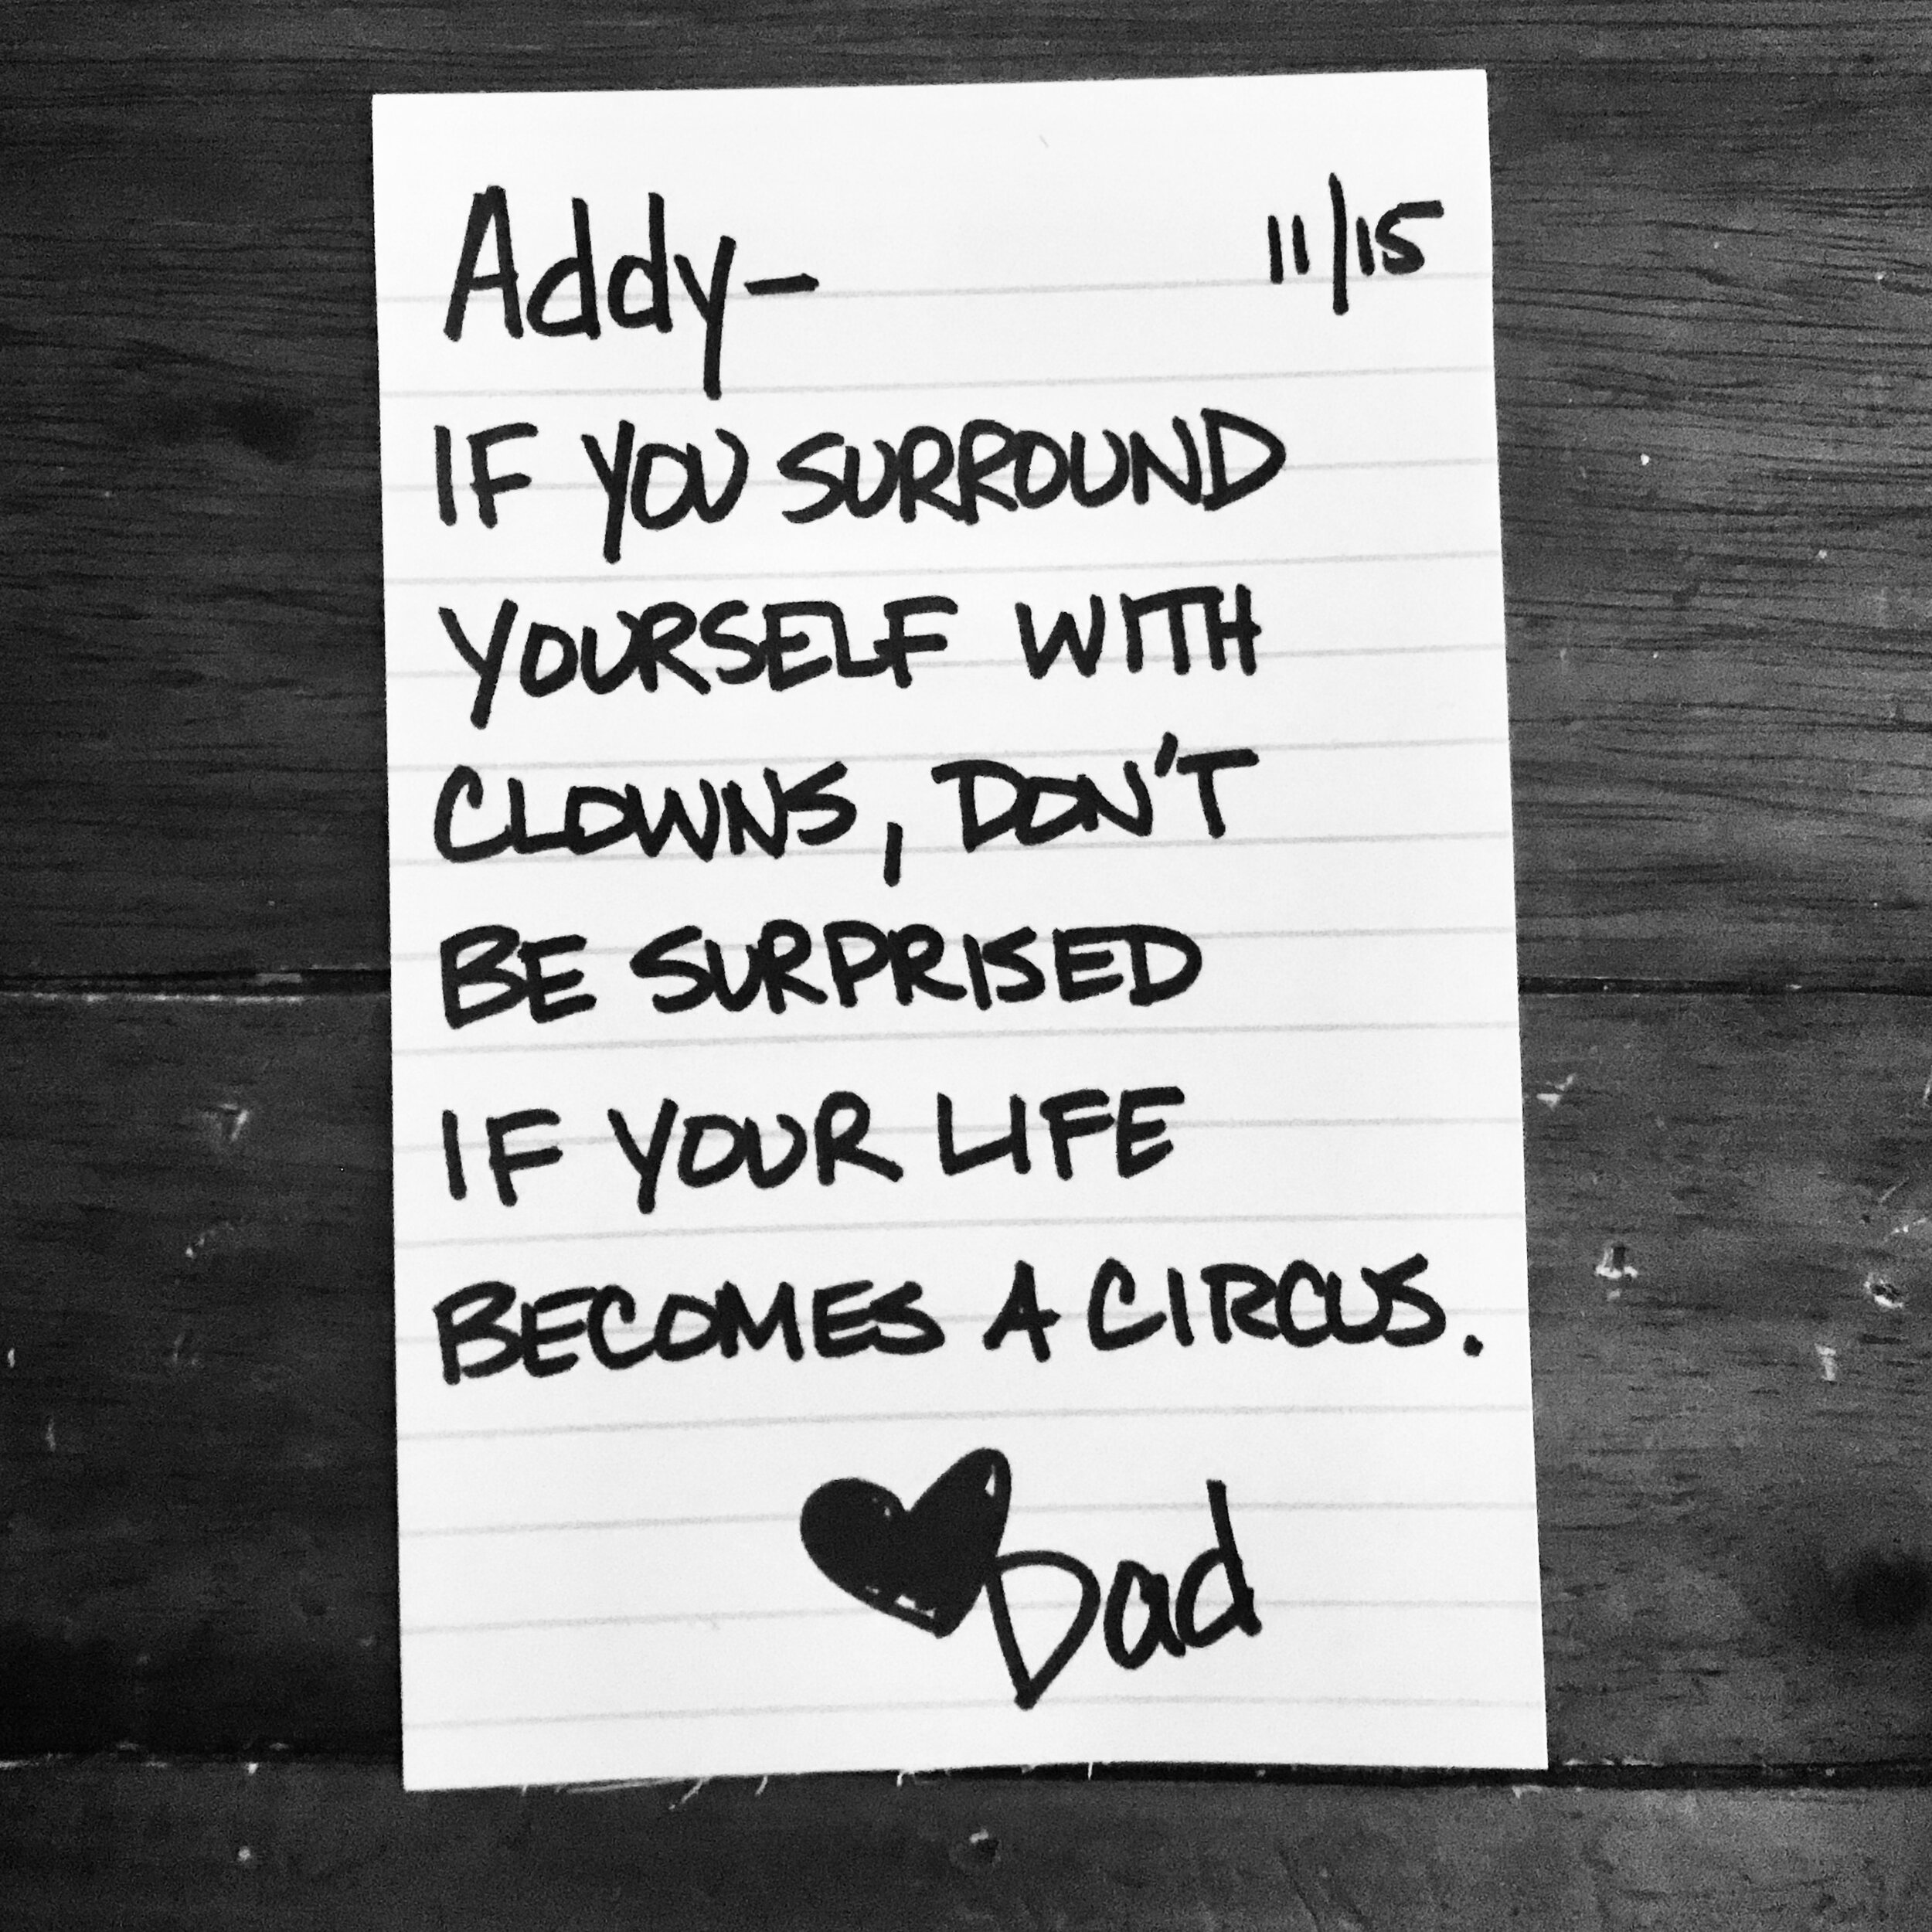 Addy- 11/15
IF YOU SURROUND
YOURSELF WITH
CLOWNS, DON'T
BE SURPRISED
IF YOUR LIFE
BECOMES A CIRCUS.
♥Dad